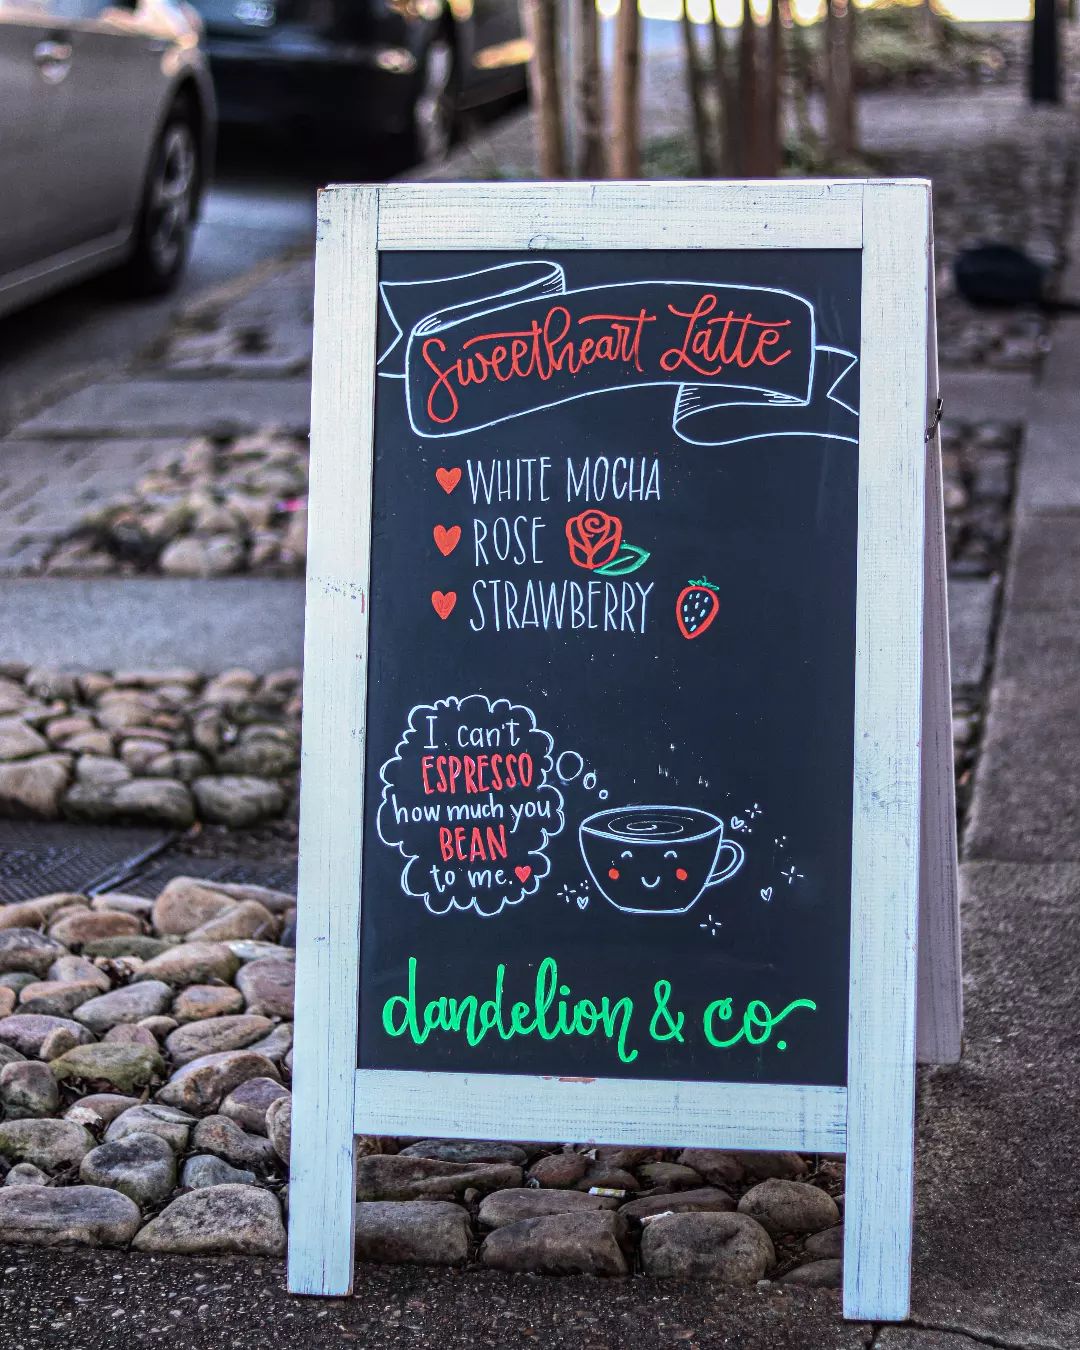 Sweetheart Latte
WHITE MOCHA
ROSE
STRAWBERRY
I can't
ESPRESSO
how much you
BEAN
to me.
dandelion & co.